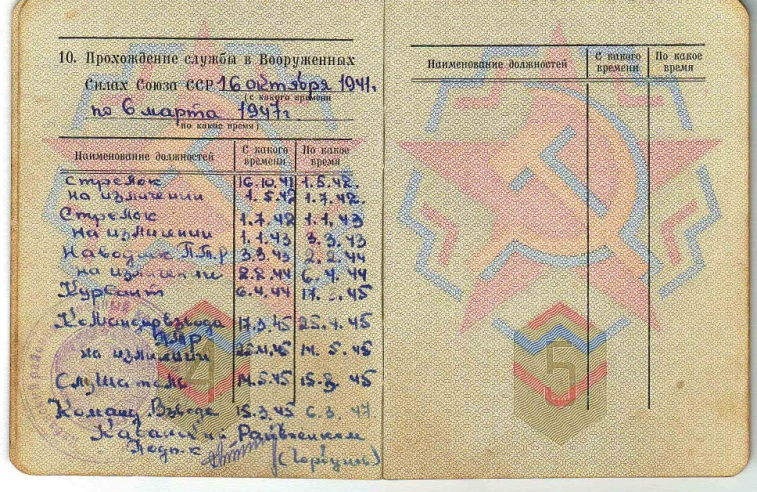 10. Прохождение службы в Вооруженных
Силах Союза ССР 16 октября 1941г.
(с какого времени
по 6 марта 1947г
по какое время)
Наименование должностей С какого времени По какое время
Стрелок 16.10.41 1.5.42.
на излечении 1.5.42 1.7.42.
Стрелок 1.7.42 1.1.43
на излечении 1.1.43 3.3.43
Наводчик П.Т.р 3.3.43 2.2.44
на излечении 2.2.44 6.4.44
Курсант 6.4.44 17. 45
Командир взвода 17.3.45 25.4.45
ПТР
на излечении 25.4.45 14.5.45
Слушатель 14.5.45 15. 45
Команд. Взвода 15.3.45 6.3.47
Райвоенком
4
Наименование должностей С какого времени По какое время
5